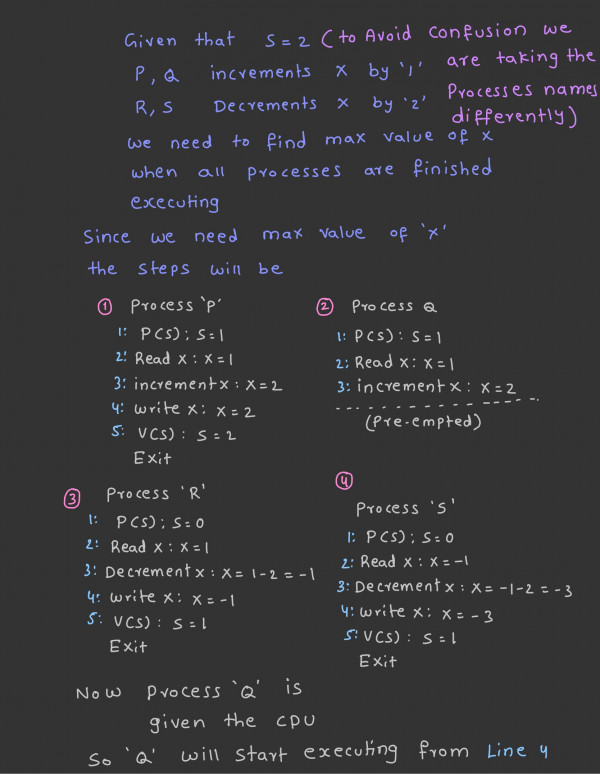 Given that S = 2 (to Avoid Confusion we
P, Q increments x by '1' are taking the
R, S Decrements x by '2' Processes names
differently)
we need to find max value of x
when all processes are finished
executing
Since we need max value of 'x'
the steps will be
① Process 'P'
1: P(S); S=1
2: Read x : x=1
3: increment x : x=2
4: write x : x=2
5: V(S) : S=2
Exit
② Process Q
1: P(S) : S=1
2: Read x : x=1
3: increment x : x=2
(Pre-empted)
③ Process 'R'
1: P(S); S=0
2: Read x : x=1
3: Decrement x : x = 1-2 = -1
4: write x : x = -1
5: V(S) : S=1
Exit
④
Process 'S'
1: P(S) : S=0
2: Read x : x=-1
3: Decrement x : x = -1-2 = -3
4: write x : x = -3
5: V(S) : S=1
Exit
Now Process 'Q' is
given the CPU
So 'Q' will start executing from Line 4